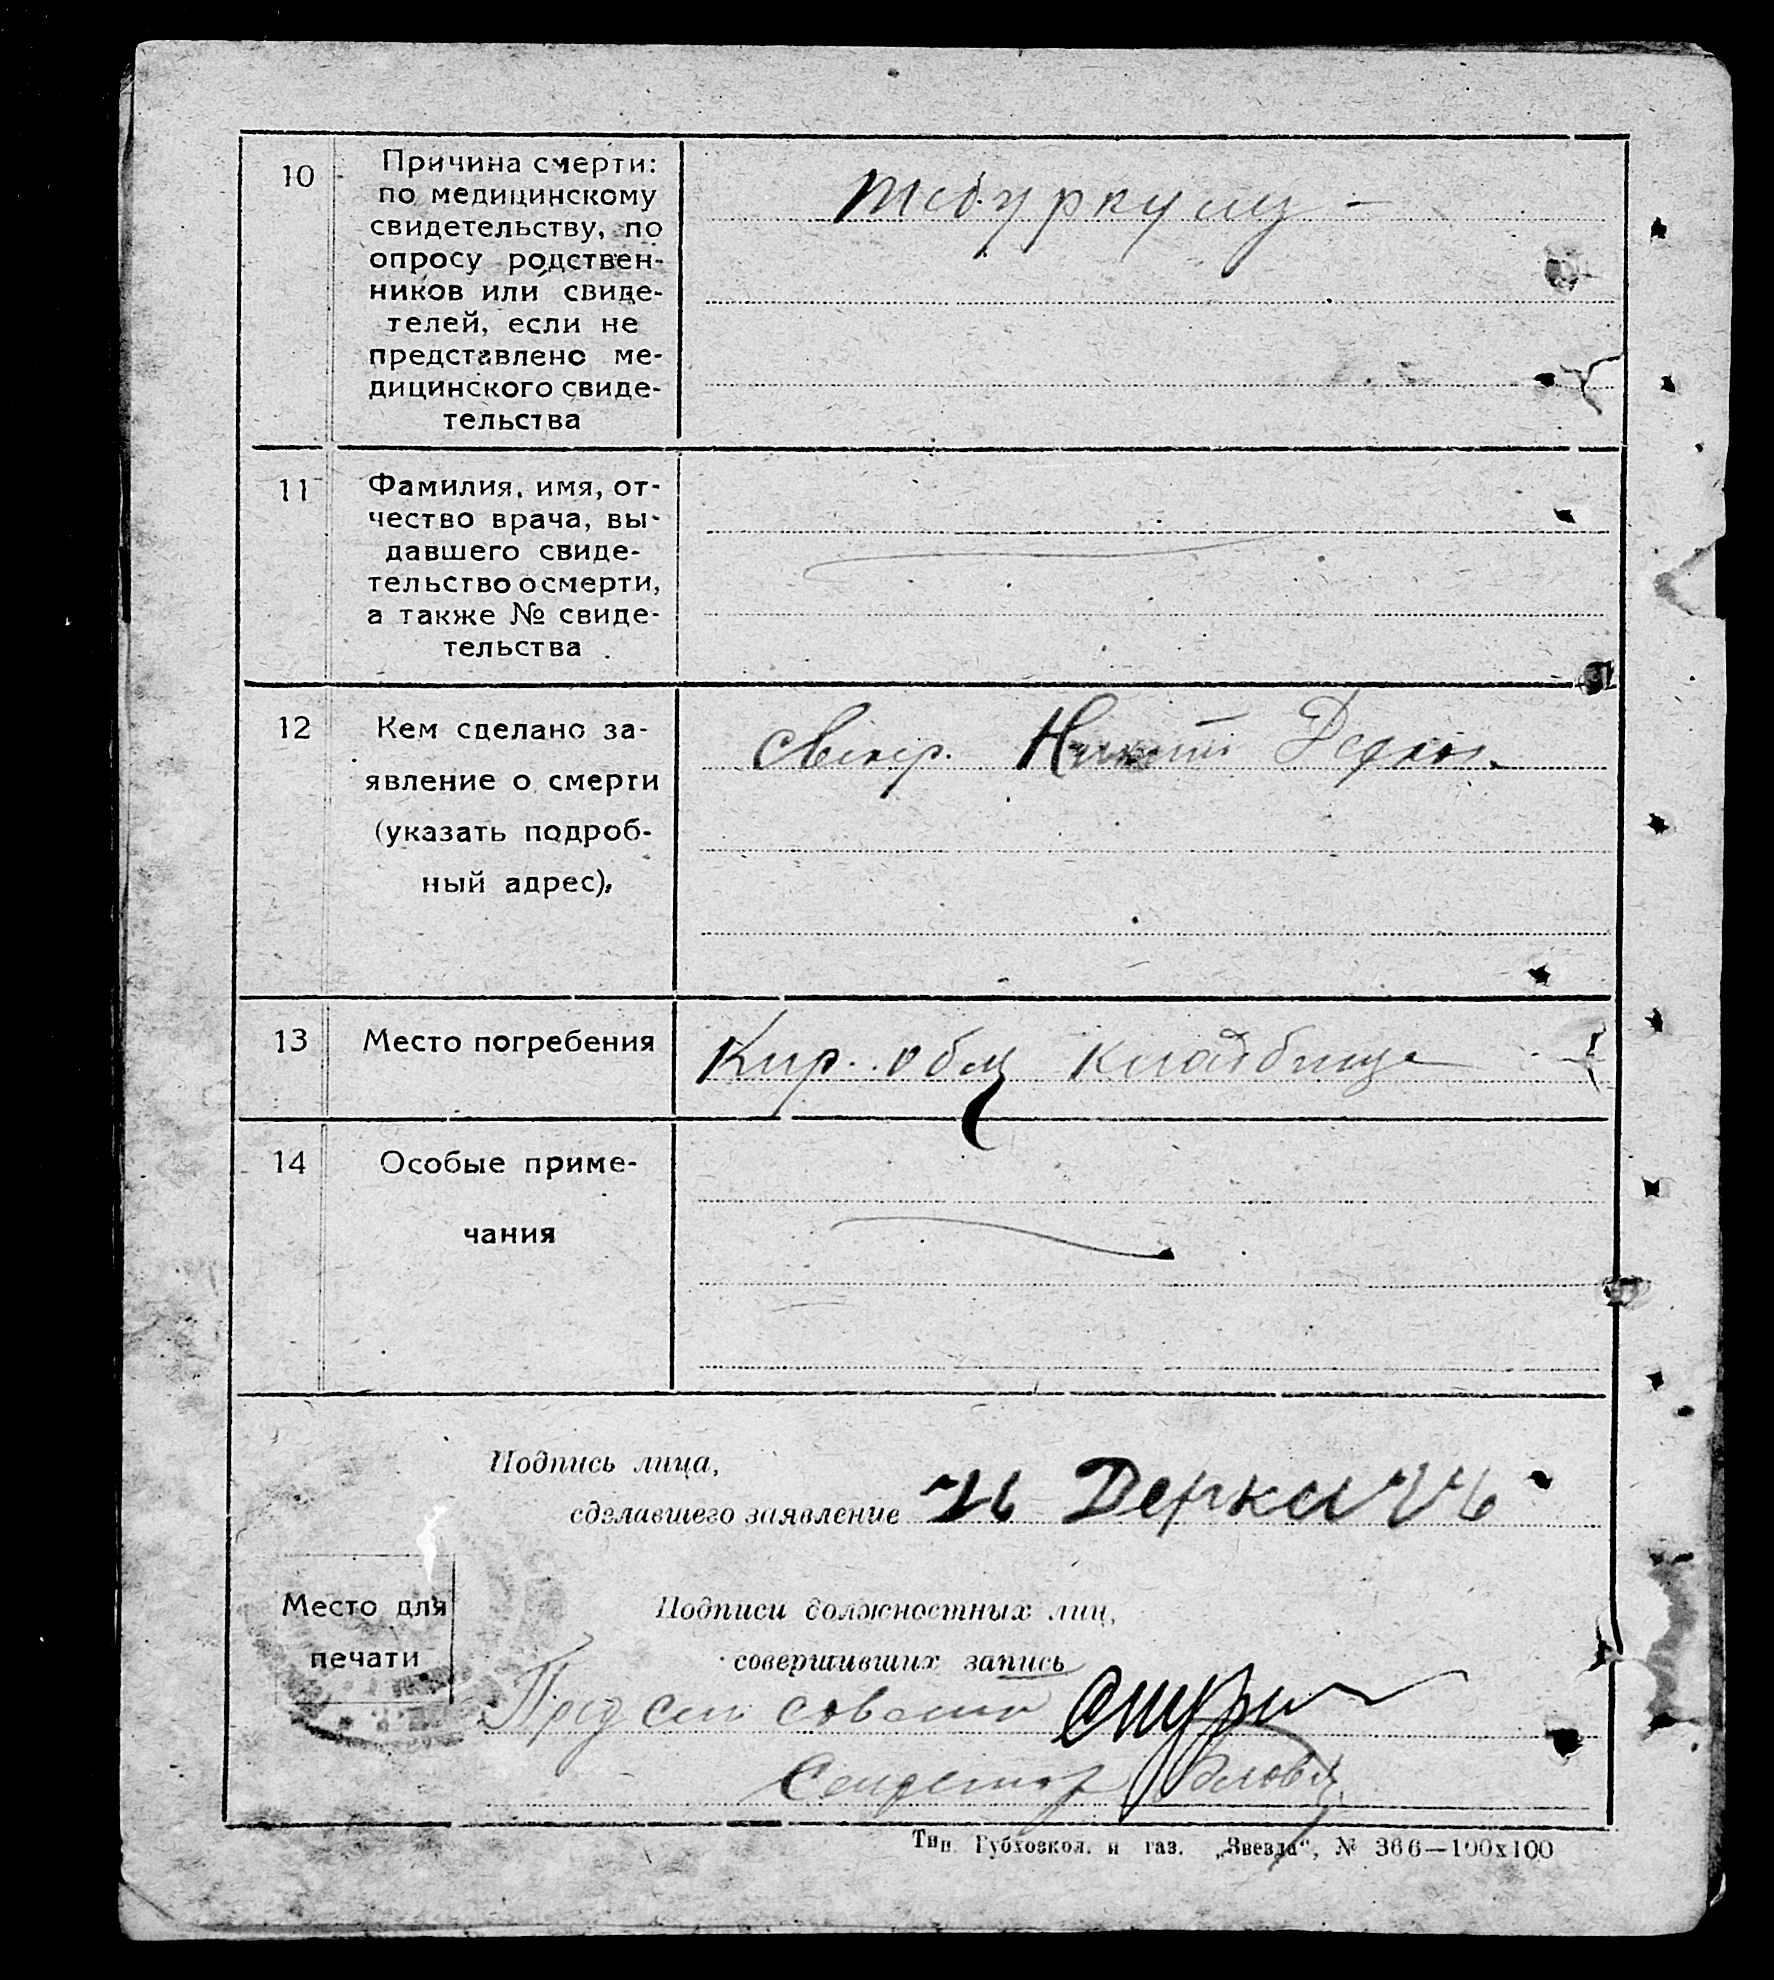 10
Причина смерти:
по медицинскому
свидетельству, по
опросу родствен-
ников или свиде-
телей, если не
представлено ме-
дицинского свиде-
тельства
11
Фамилия, имя, от-
чество врача, вы-
давшего свиде-
тельство о смерти,
а также № свиде-
тельства
12
Кем сделано за-
явление о смерти
(указать подроб-
ный адрес).
свекр.
13
Место погребения
Кир. общ кладбище
14
Особые приме-
чания
Подпись лица,
сделавшего заявление
Деркачь
Место для
печати
Подписи должностных лиц,
совершивших запись
Пред сель совета
Секретар
Тип. Губхозкол. и газ. „Звезда“, № 366—100х100